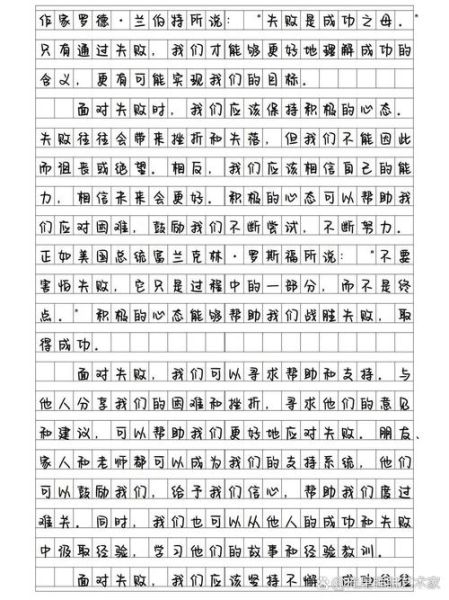 作家罗德·兰伯特所说："失败是成功之母。"
只有通过失败，我们才能够更好地理解成功的
含义，更有可能实现我们的目标。
面对失败时，我们应该保持积极的心态。
失败往往会带来挫折和失落，但我们不能因此
而沮丧或绝望。相反，我们应该相信自己的能
力，相信未来会更好。积极的心态可以帮助我
们应对困难，鼓励我们不断尝试，不断努力。
正如美国总统富兰克林·罗斯福所说："不要
害怕失败，它只是过程中的一部分，而不是终
点。"积极的心态能够帮助我们战胜失败，取
得成功。
面对失败，我们可以寻求帮助和支持。与
他人分享我们的困难和挫折，寻求他们的意见
和建议，可以帮助我们更好地应对失败。朋友、
家人和老师都可以成为我们的支持系统，他们
可以鼓励我们，给予我们信心，帮助我们度过
难关。同时，我们也可以从他人的成功和失败
中汲取经验，学习他们的故事和经验教训。
面对失败，我们应该坚持不懈。成功往往